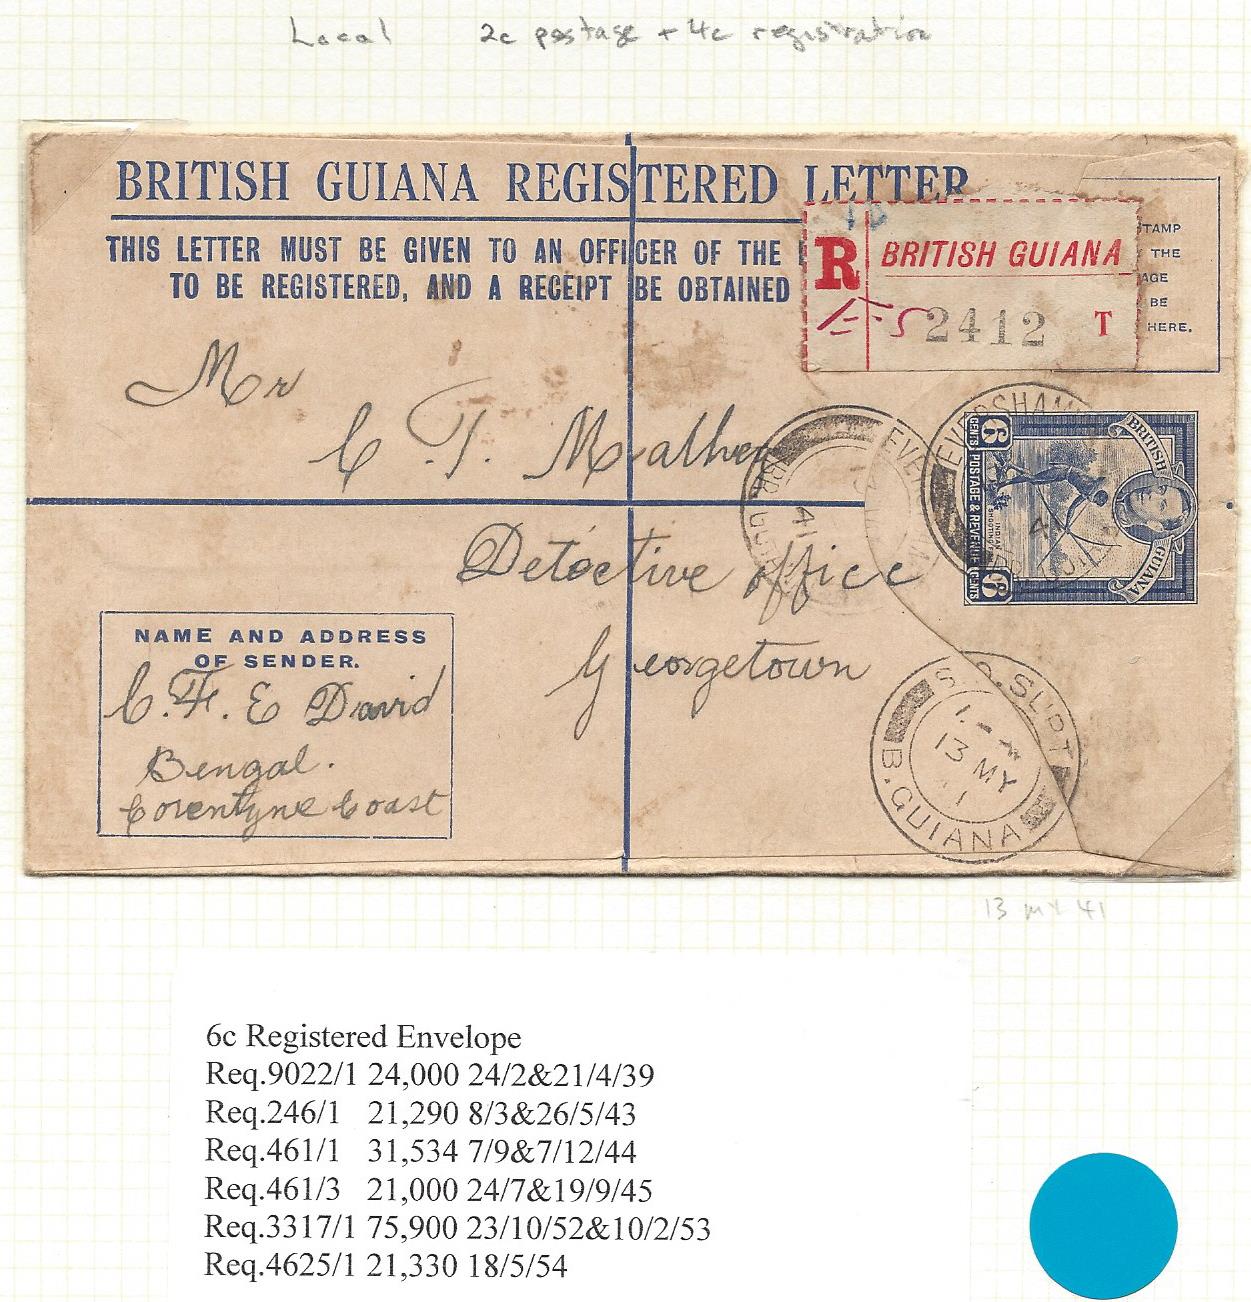 Local 2c postage + 4c registration
BRITISH GUIANA REGISTERED LETTER
THIS LETTER MUST BE GIVEN TO AN OFFICER OF THE
TO BE REGISTERED, AND A RECEIPT BE OBTAINED
TAMP
THE
AGE
BE
HERE.
R BRITISH GUIANA
2412 T
Mr
C. T. Mather
Detective office
Georgetown
EVERSHAM
41
6 CENTS POSTAGE & REVENUE 6 CENTS
INDIAN SHOOTING FISH
BRITISH GUIANA
NAME AND ADDRESS
OF SENDER.
C. F. E David
Bengal.
Corentyne Coast
SUPT
13 MY
41
B. GUIANA
13 MY 41
6c Registered Envelope
Req.9022/1 24,000 24/2&21/4/39
Req.246/1 21,290 8/3&26/5/43
Req.461/1 31,534 7/9&7/12/44
Req.461/3 21,000 24/7&19/9/45
Req.3317/1 75,900 23/10/52&10/2/53
Req.4625/1 21,330 18/5/54